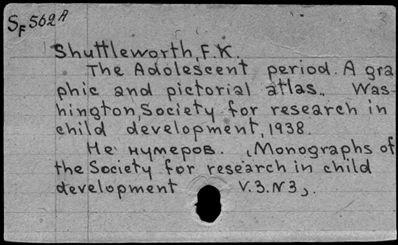 SF 562 A
Shuttleworth, F.K.
The Adolescent period. A gra
phic and pictorial atlas. Was-
hington, Society for research in
child development, 1938.
Не нумеров. (Monographs of
the Society for research in child
development V.3.N3).